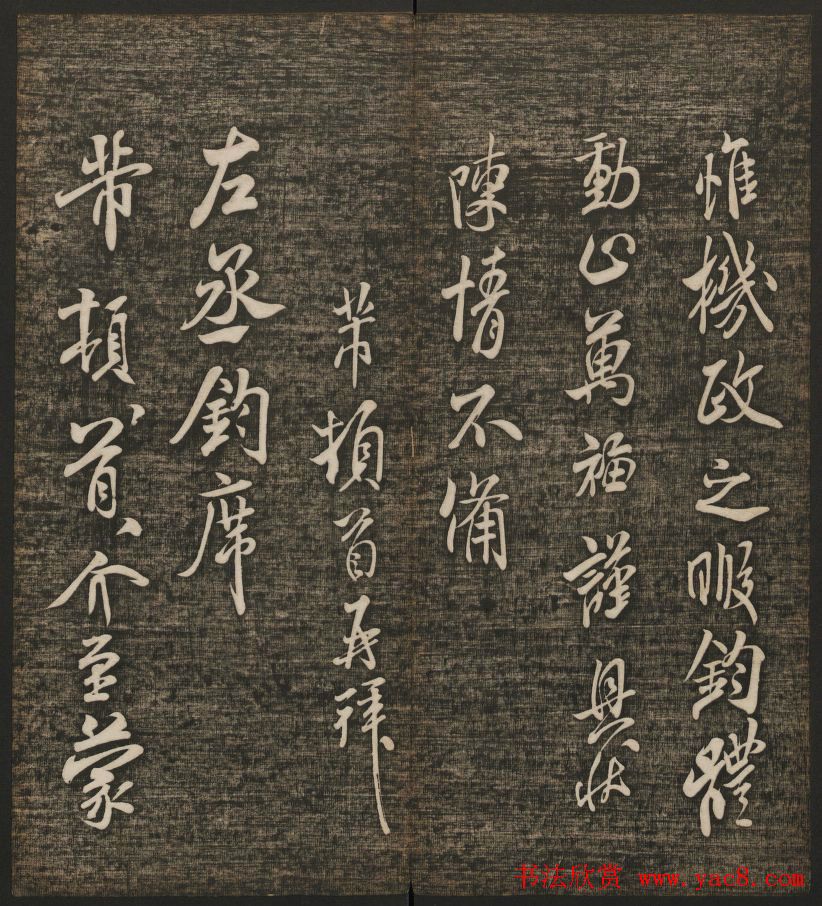 惟機政之暇鈞體
動止萬福謹具狀
陳情不備
芾頓首再拜
左丞鈞席
芾頓〻首〻介至蒙
书法欣赏 www.yac8.com